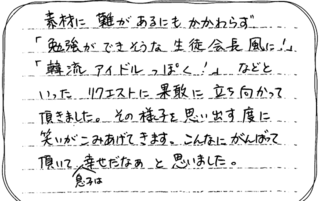 素材に難があるにもかかわらず
「勉強ができそうな生徒会長風に！」
「韓流アイドルっぽく！」などと
いったリクエストに果敢に立ち向かって
頂きました。その様子を思い出す度に
笑いがこみあげてきます。こんなにがんばって
頂いて幸せだなぁと思いました。
息子は